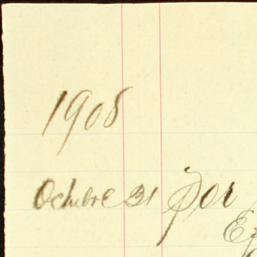 1908
Octubre 21 Por